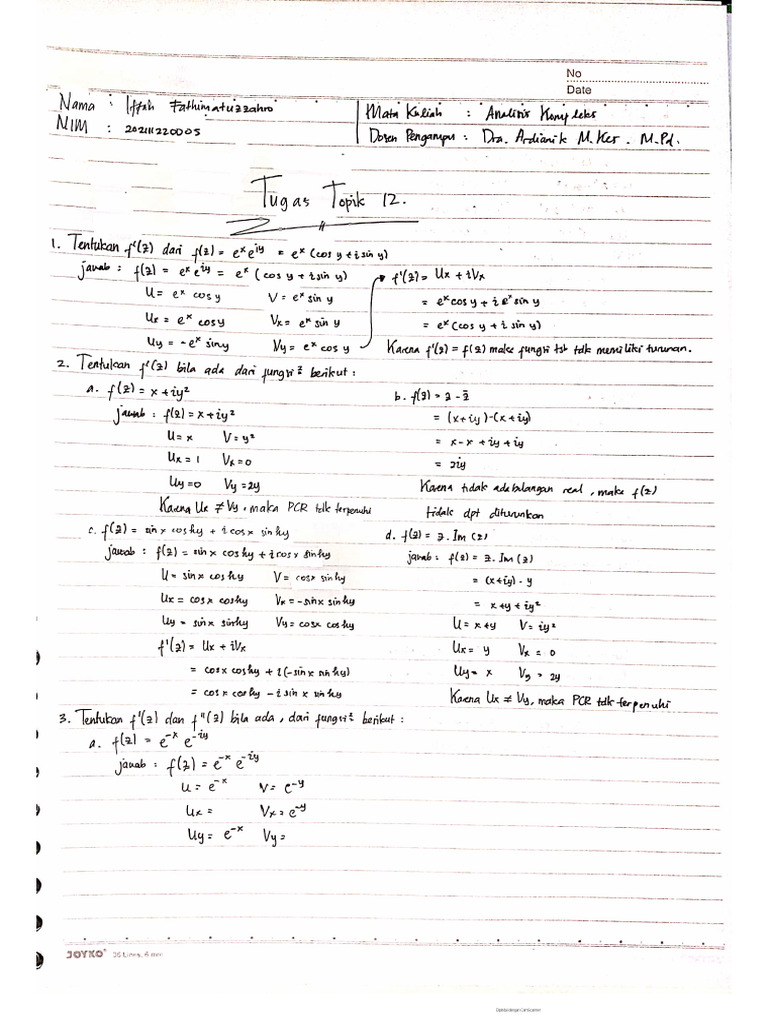 No
Date
Nama : Iffah Fathimatuzzahro
NIM : 20211220005
Mata Kuliah : Analisis Kompleks
Dosen Pengampu : Dra. Ardianik M.Kes. M.Pd.
Tugas Topik 12.
1. Tentukan f'(z) dari f(z) = e^x e^iy = e^x (cos y + i sin y)
jawab : f(z) = e^x e^iy = e^x (cos y + i sin y)
U = e^x cos y V = e^x sin y
Ux = e^x cos y Vx = e^x sin y
Uy = -e^x sin y Vy = e^x cos y
f'(z) = Ux + iVx
= e^x cos y + i e^x sin y
= e^x (cos y + i sin y)
Karena f'(z) = f(z) maka fungsi tsb tdk memiliki turunan.
2. Tentukan f'(z) bila ada dari fungsi² berikut :
a. f(z) = x + iy²
jawab : f(z) = x + iy²
U = x V = y²
Ux = 1 Vx = 0
Uy = 0 Vy = 2y
Karena Ux ≠ Vy, maka PCR tdk terpenuhi
b. f(z) = z - z̄
= (x+iy)-(x+iy)
= x-x + iy + iy
= 2iy
Karena tidak ada bilangan real, maka f(z)
tidak dpt diturunkan
c. f(z) = sin x cos hy + i cos x sin hy
jawab : f(z) = sin x cos hy + i cos x sin hy
U = sin x cos hy V = cos x sin hy
Ux = cos x cos hy Vx = -sin x sin hy
Uy = sin x sin hy Vy = cos x cos hy
f'(z) = Ux + iVx
= cos x cos hy + i(-sin x sin hy)
= cos x cos hy - i sin x sin hy
d. f(z) = z. Im (z)
jawab : f(z) = z. Im (z)
= (x+iy) . y
= x+y + iy²
U = x+y V = iy²
Ux = y Vx = 0
Uy = x Vy = 2y
Karena Ux ≠ Vy, maka PCR tdk terpenuhi
3. Tentukan f'(z) dan f''(z) bila ada, dari fungsi² berikut :
a. f(z) = e^-x e^-iy
jawab : f(z) = e^-x e^-iy
U = e^-x V = e^-y
Ux = Vx = e^-y
Uy = e^-x Vy =
JOYKO® 36 Lines, 6 mm
Dipindai dengan CamScanner